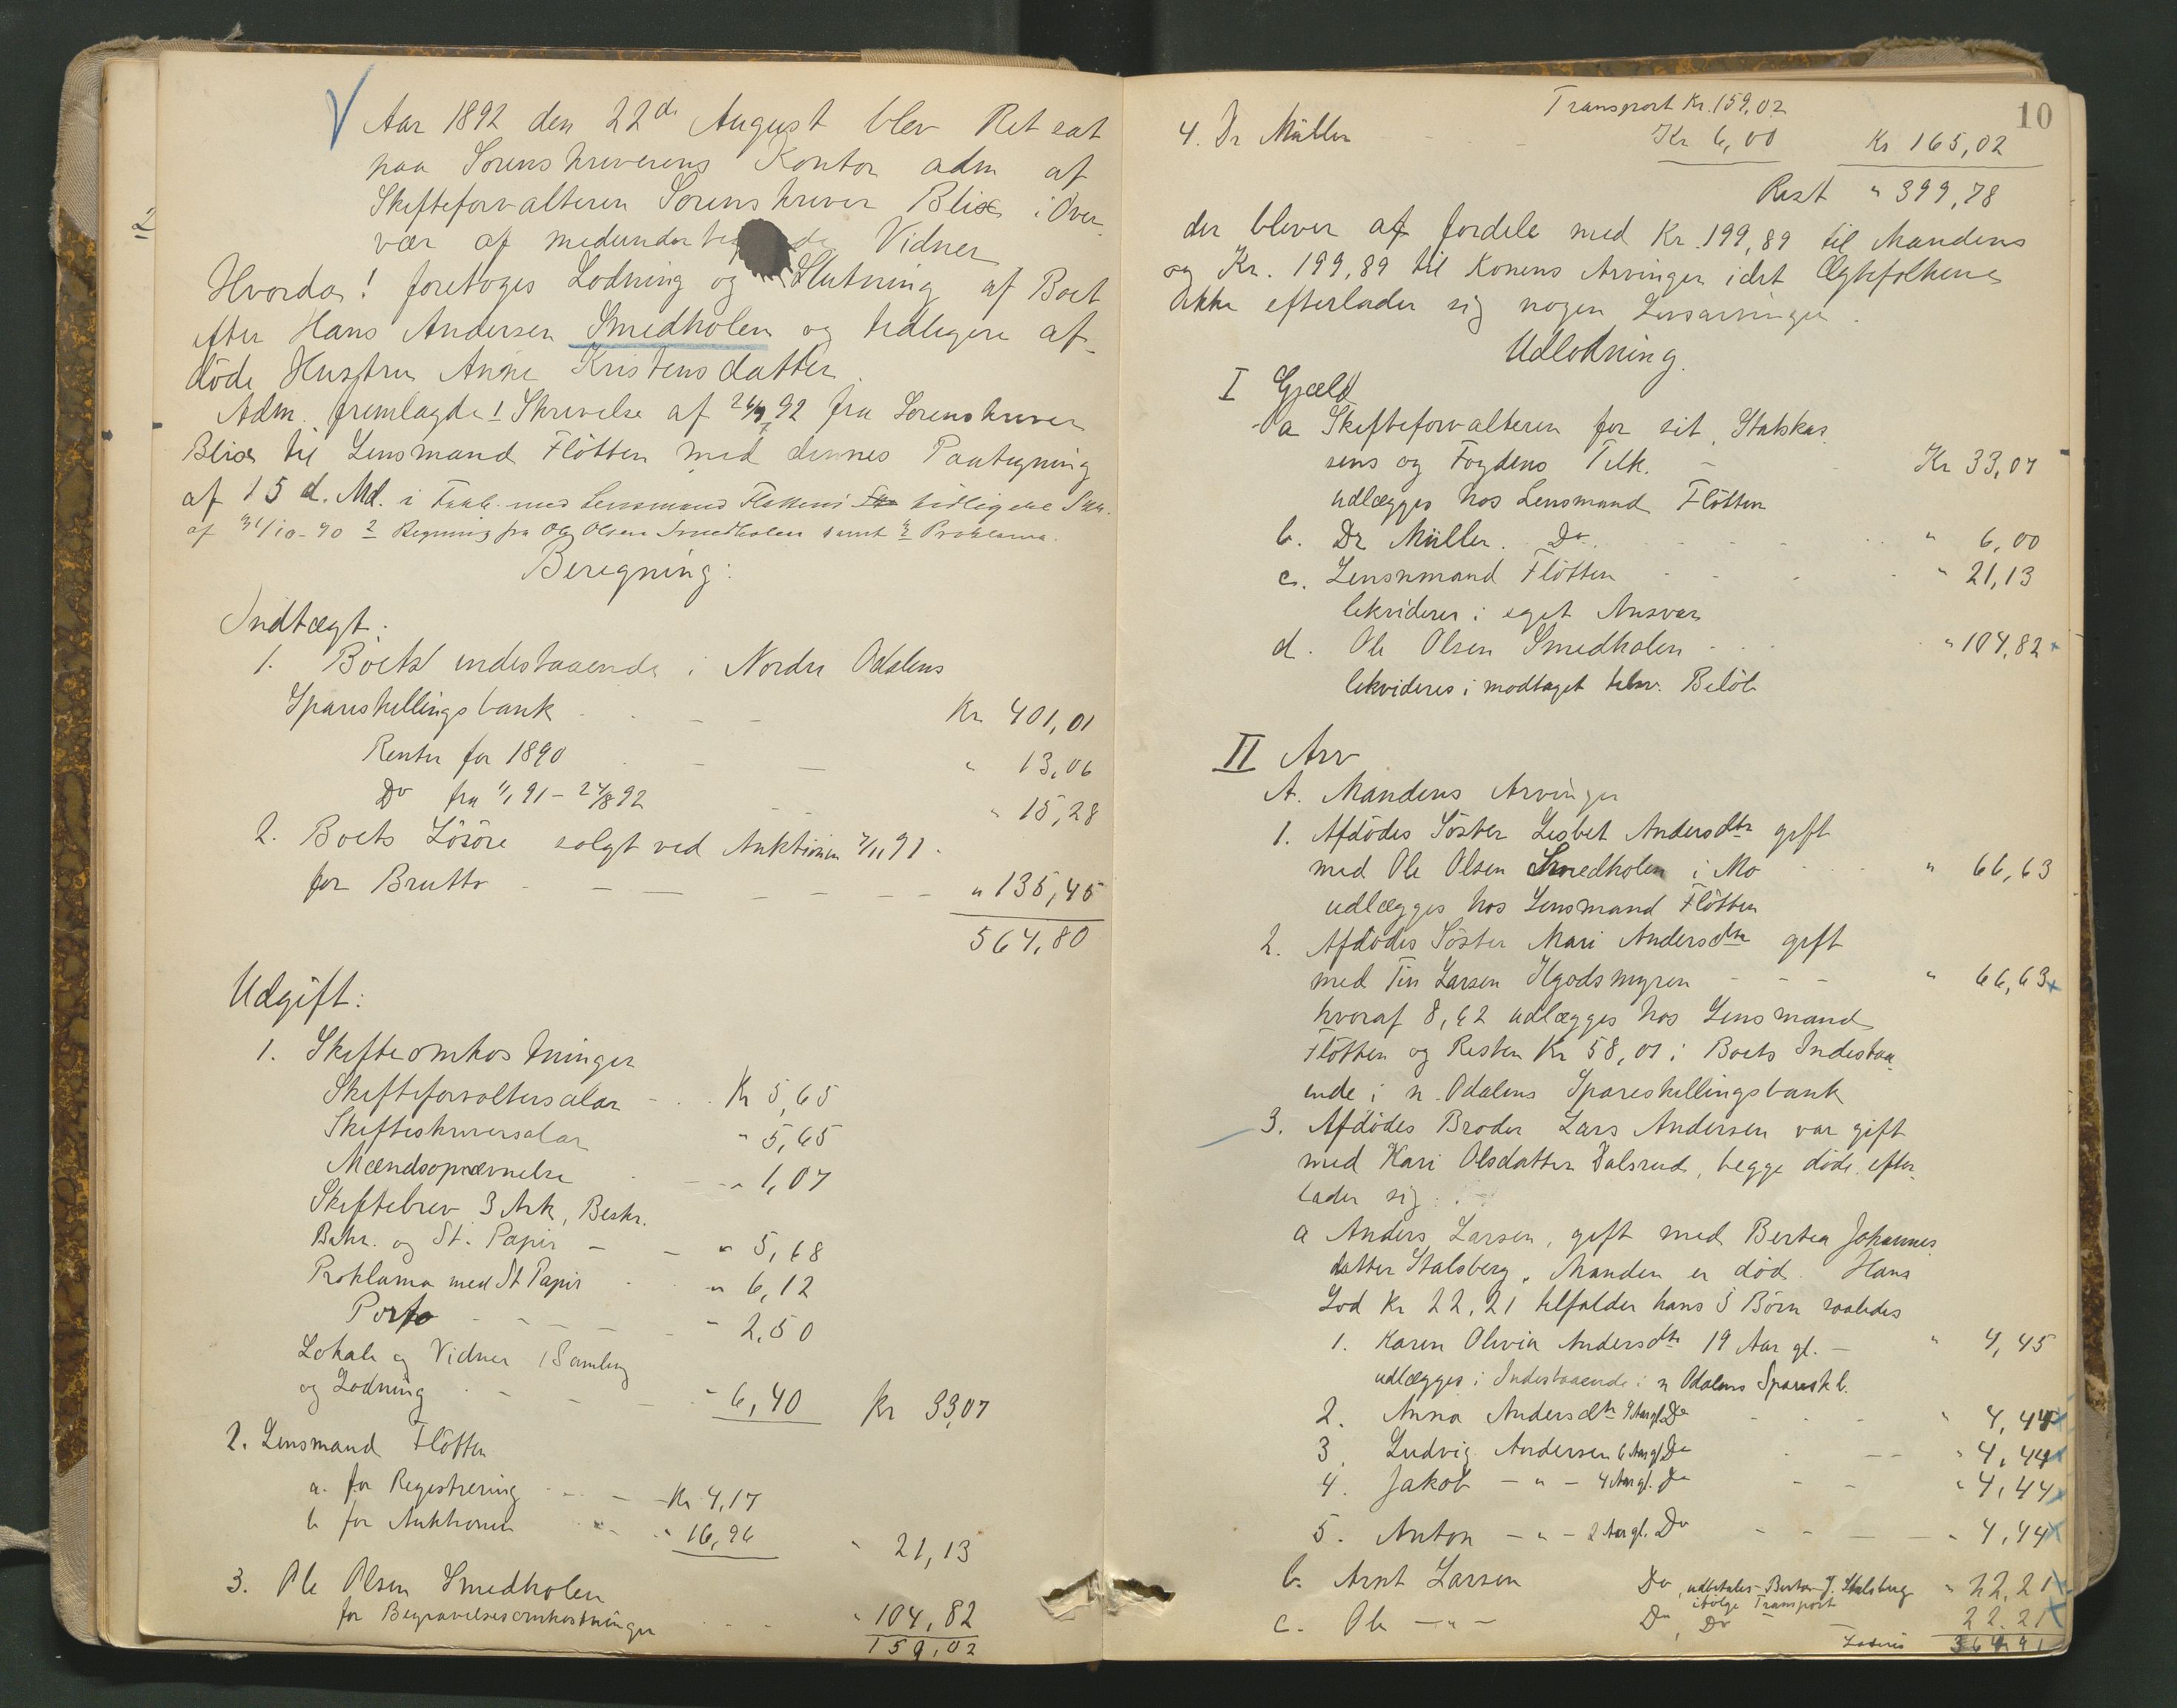 Aar 1892 den 22de August blev Ret sat
paa Sorenskriverens Kontor adm af
Skifteforvalteren Sorenskriver Blix i Over-
vær af medunder de Vidner
2
Hvorda! foretoges Lodning og Slutning af Boet
efter Hans Andersen Smedholen og tidligere af-
döde Hustru Anne Kristensdatter.
Adm. fremlagde 1 Skrivelse af 92 fra Sorenskriver
Blix til Lensmand Flötten med dennes Paategning
af 15 d. Md. i med Lensmand Flöttens tidligere
af 31/10-90 2 Regning fra Ole Olsen Smedholen samt 3 Proklama.
Beregning:
Indtægt:
1. Boets indestaaende i Nordre Odalens
Spareskillingsbank - - Kr 401,01
Renter for 1890 - - " 13,06
Do fra 1/1 91 - 24/8 92 - - " 15,28
2. Boets Lösöre solgt ved Auktionen 7/11 91.
for Brutto - - - - - - " 135,45
564,80
Udgift:
1. Skifteomkostninger
Skifteforvaltersalær - - Kr 5,65
Skifteskriversalær " 5,65
Mændsopnævnelse - - " 1,07
Skiftebrev 3 Ark, Beskr.
Behr. og St. Papir - - " 5,68
Proklama med St Papir " 6,12
Porto - - - - - " 2,50
Lokale og Vidner 1 Samling
og Lodning - - - " 6,40 Kr 33,07
2. Lensmand Flötten
a. for Registrering - - - Kr 4,17
b for Auktionen " 16,96 " 21,13
3. Ole Olsen Smedholen
for Begravelsesomkostninger - - " 104,82
159,02
10
Transport Kr. 159,02
4. Dr Müller - - Kr 6,00 Kr 165,02
Rest " 399,78
der bliver at fordele med Kr. 199,89 til Mandens
og Kr. 199,89 til Konens Arvinger idet Ægtefolkene
ikke efterlader sig nogen Livsarvinger.
Udlodning.
I Gjæld
a Skifteforvalteren for sit, Statskas-
sens og Fogdens Tilk. - Kr 33,07
udlægges hos Lensmand Flötten
b. Dr Müller. Do. - - - - " 6,00
c. Lensmand Flötten - - - " 21,13
likviderer i eget Ansvar
d. Ole Olsen Smedholen - - - " 104,82
likvideres i modtaget tilsv. Belöb
II Arv
A. Mandens Arvinger
1. Afdödes Söster Lisbet Andersdtr gift
med Ole Olsen Smedholen i Mo - - " 66,63
udlægges hos Lensmand Flötten
2. Afdödes Söster Mari Andersdtr gift
med Larsen - - - " 66,63
hvoraf 8,62 udlægges hos Lensmand
Flötten og Resten Kr 58,01 i Boets Indestaa-
ende i n. Odalens Spareskillingsbank
3. Afdödes Broder Lars Andersen var gift
med Kari Olsdatter Dalsrud, begge döde, efter-
lader sig:
a Anders Larsen, gift med Bertea Johannes-
datter Stalsberg, Manden er död. Hans
Lod Kr 22,21 tilfalder hans 5 Börn saaledes
1. Karen Olivia Andersdtr 19 Aar gl. - " 4,45
udlægges i Indestaaende i n Odalens Sparesk b.
2. Anna Andersdtr 9 Aar gl. Do - - - " 4,44
3. Ludvig Andersen 6 Aar gl. Do - - - " 4,44
4. Jakob - " - 4 Aar gl. Do - - " 4,44
5. Anton - " - 2 Aar gl. Do - - - - " 4,44
b. Arnt Larsen Do, udbetales Bertea J. Stalsberg " 22,21
ifölge Transport
c. Ole - " - Do, Do - 22.21
Lateris 364,91